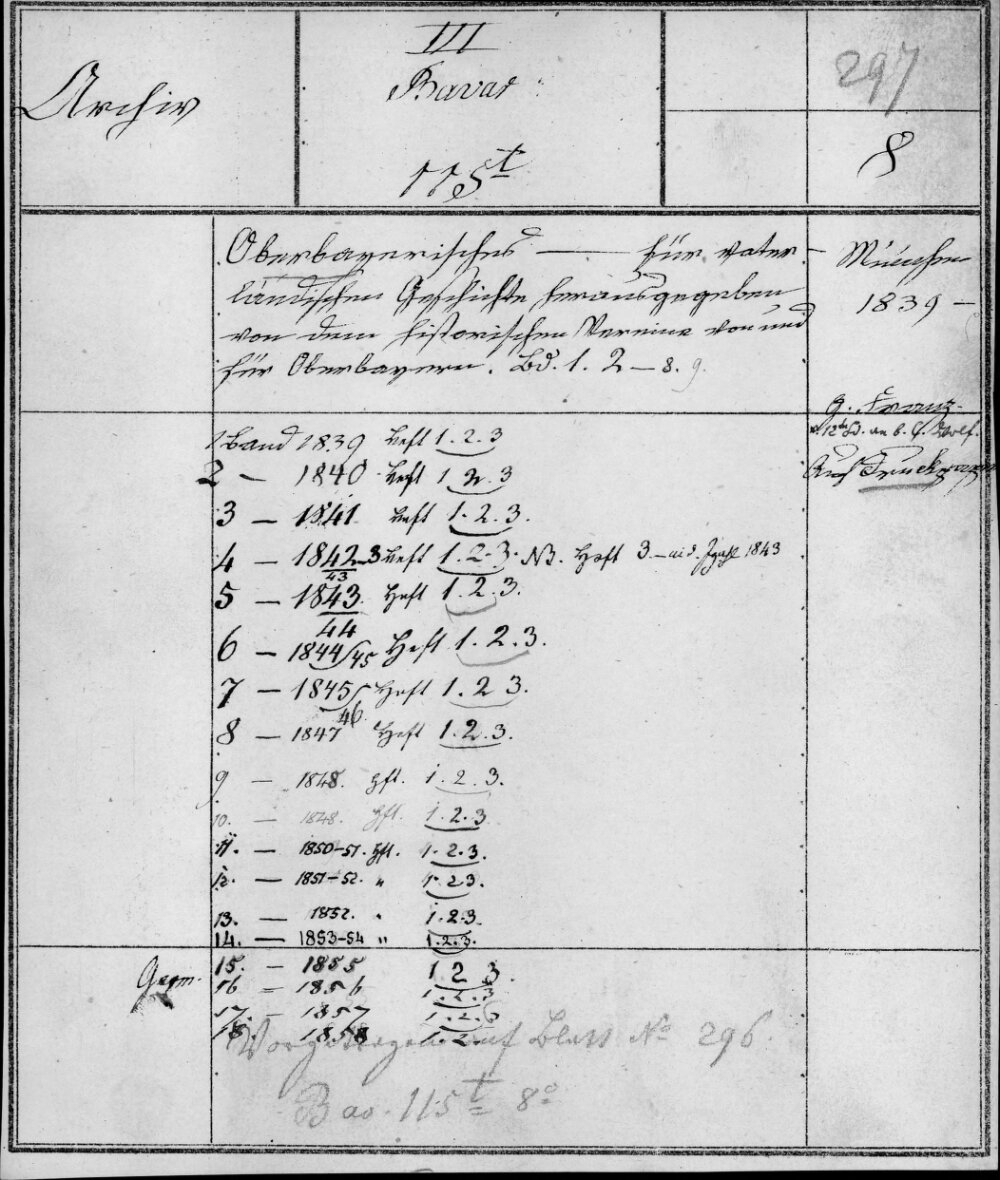 III
Archiv
Bavar
297
115t
8
Oberbayerisches — für vater-
ländischen Geschichte herausgegeben
von dem historischen Vereine von und
für Oberbayern. Bd. 1. 2 — 8. 9.
München
1839 —
G. Franz.
1 Band 1839 Heft 1. 2. 3
2 — 1840 Heft 1. 2. 3
3 — 1841 Heft 1. 2. 3.
4 — 1842-3 Heft 1. 2. 3. NB. Heft 3. 1843
43
5 — 1843 Heft 1. 2. 3.
44
6 — 1844/45 Heft 1. 2. 3.
7 — 1845/46 Heft 1. 2 3.
8 — 1847 Heft 1. 2. 3.
9 — 1848. Hft. 1. 2. 3.
10. — 1848. Hft. 1. 2. 3
11. — 1850-51. Hft. 1. 2. 3.
12. — 1851-52. " 1. 2 3.
13. — 1852. " 1. 2. 3.
14. — 1853-54 " 1. 2. 3.
15. — 1855 1 2 3.
16 — 1856 1. 2. 3
17. — 1857 1. 2.
18. 1858 1. 2.
auf Blatt No 296.
Bav. 115t 8o